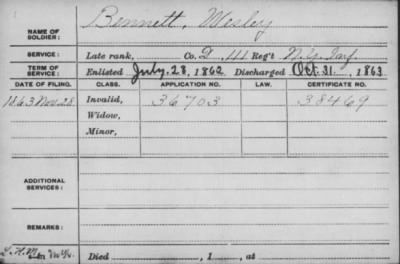 NAME OF SOLDIER: Bennett, Wesley
SERVICE: Late rank, Co. D, 111 Reg't N.Y. Inf.
TERM OF SERVICE: Enlisted July 28, 1862 Discharged Oct. 31, 1863
DATE OF FILING. CLASS. APPLICATION NO. LAW. CERTIFICATE NO.
1863 Nov. 28 Invalid, 36703 38469
Widow,
Minor,
ADDITIONAL SERVICES:
REMARKS:
Died , 1 , at